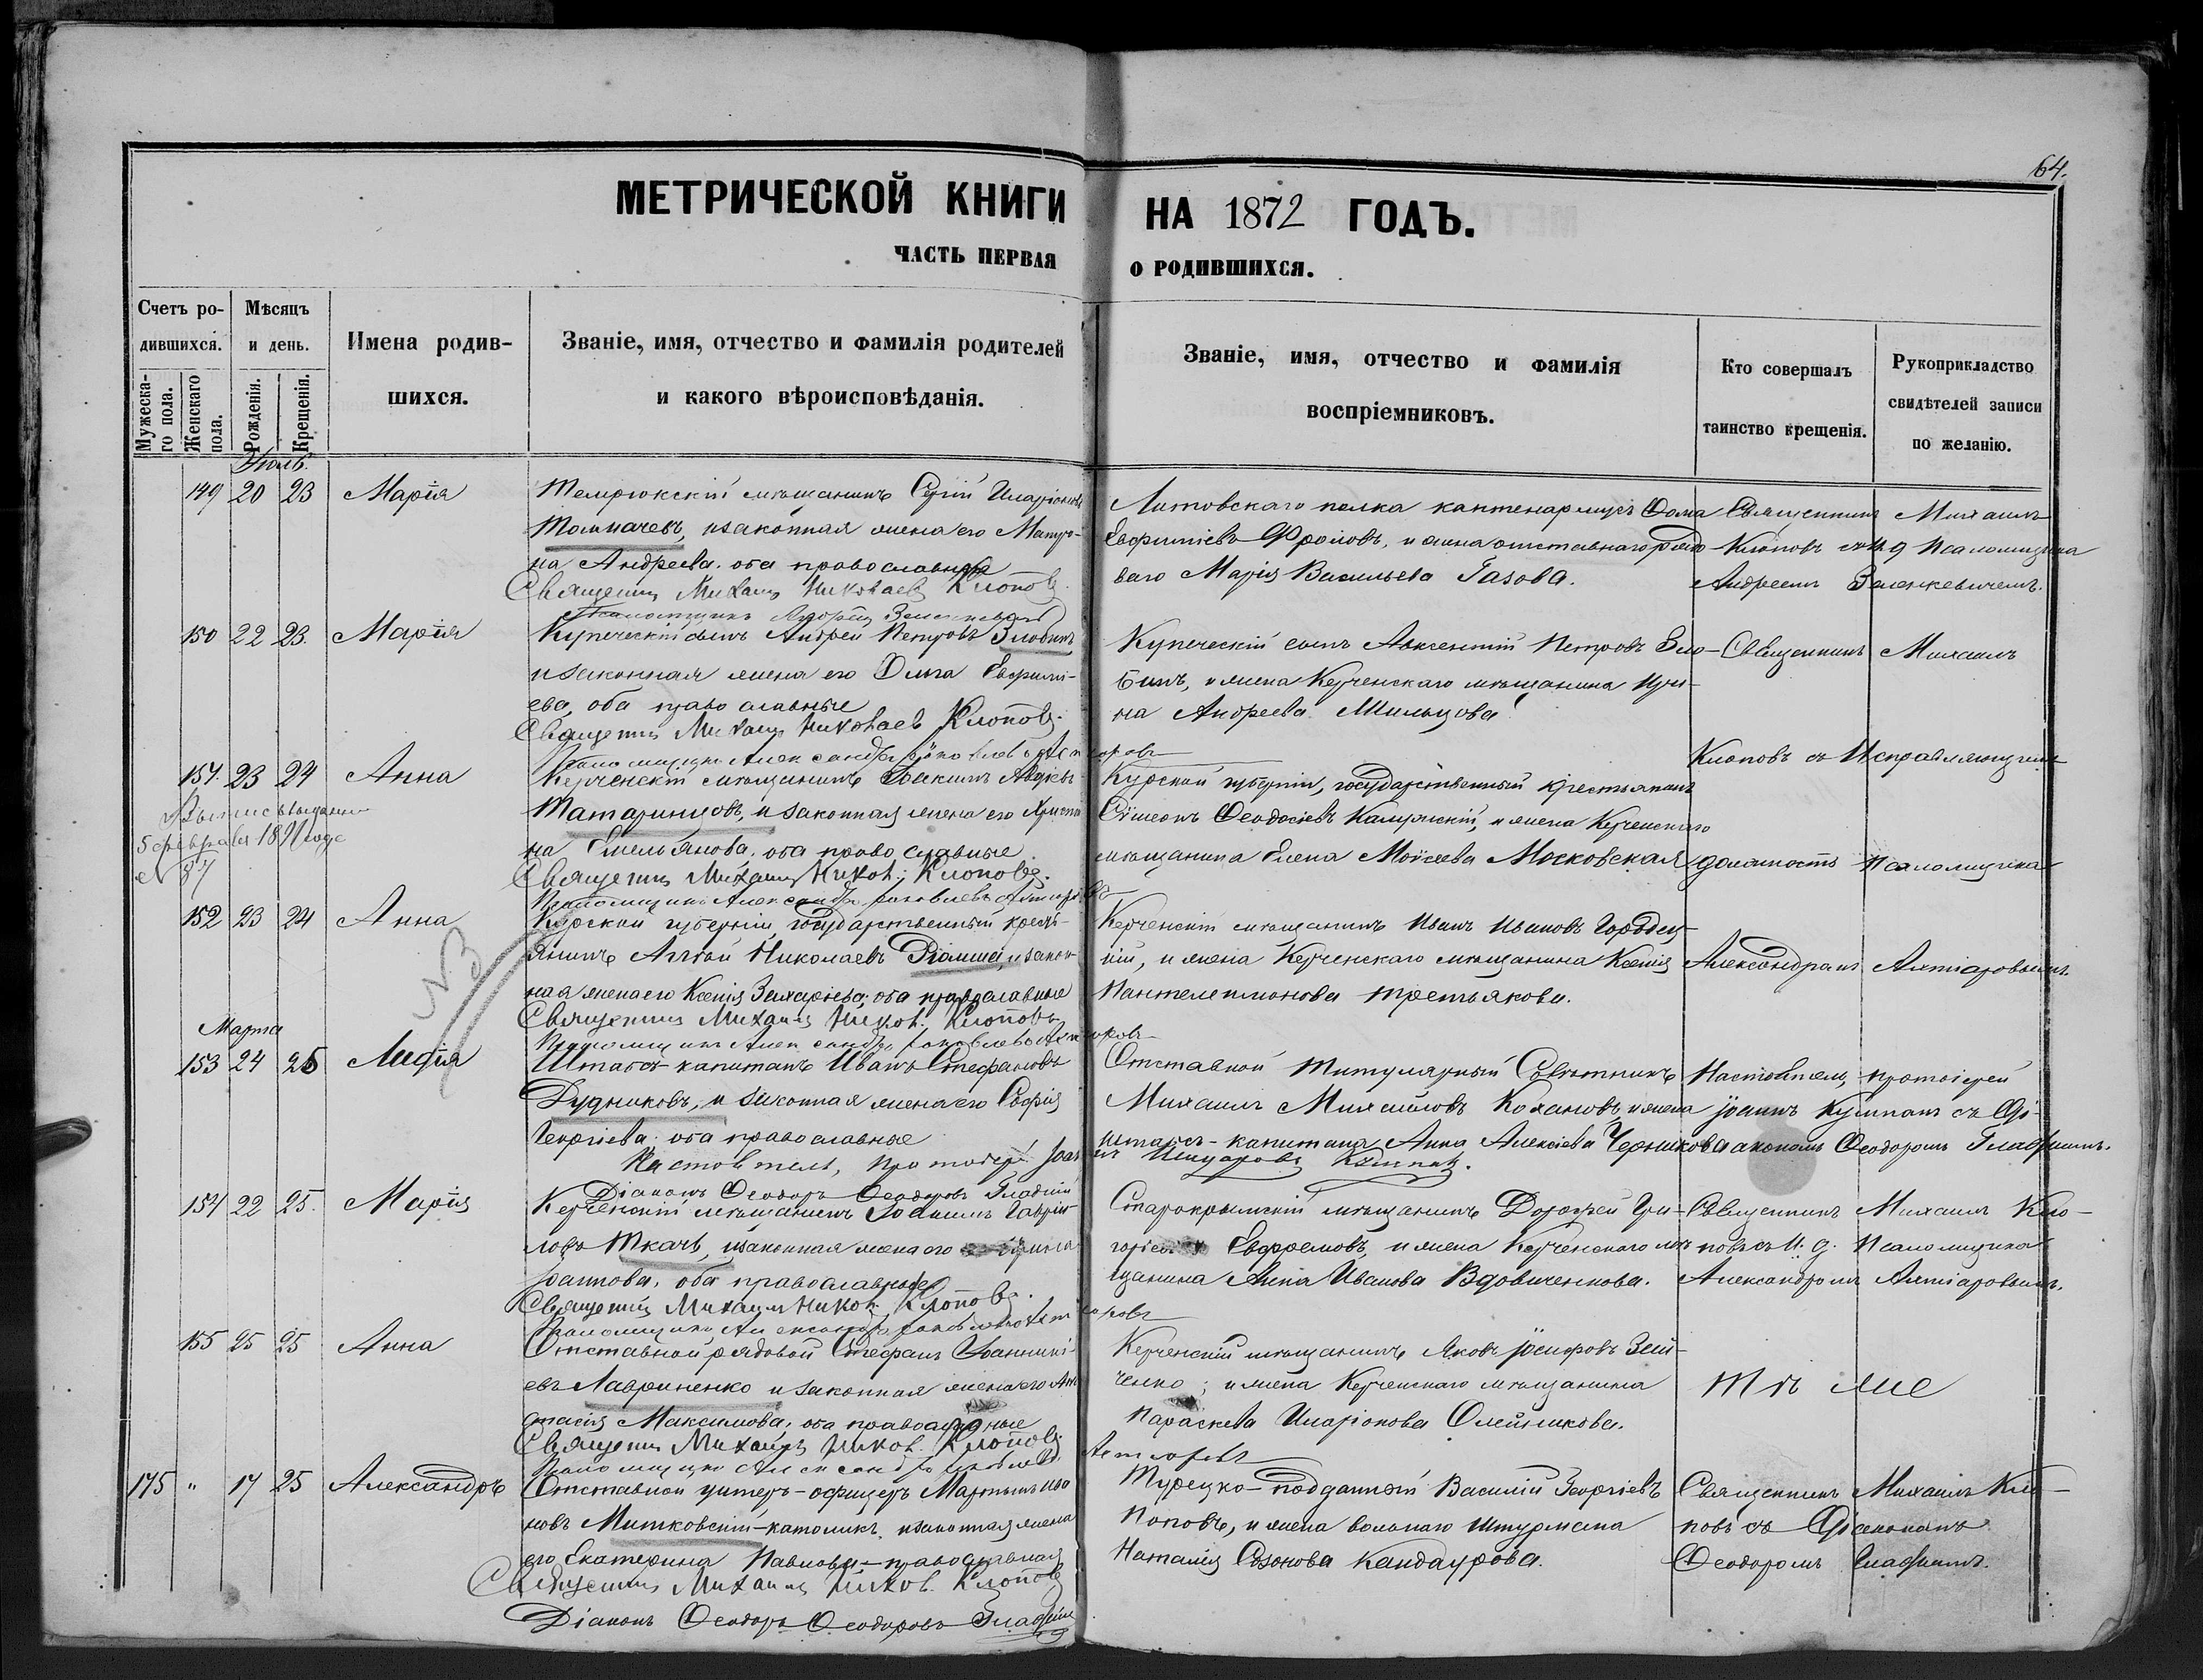 64.
МЕТРИЧЕСКОЙ КНИГИ НА 1872 ГОДЪ.
ЧАСТЬ ПЕРВАЯ О РОДИВШИХСЯ.
Счетъ родившихся.
Мужескаго пола.
Женскаго пола.
Мѣсяцъ и день.
Рожденія.
Крещенія.
Имена родившихся.
Званіе, имя, отчество и фамилія родителей
и какого вѣроисповѣданія.
Званіе, имя, отчество и фамилія
воспріемниковъ.
Кто совершалъ
таинство крещенія.
Рукоприкладство
свидѣтелей записи
по желанію.
149 20 23 Марія
Темрюкскій мѣщанинъ Сергій Иларіоновъ
Толмачевъ, и законная жена его Матро-
на Андреева. оба православныя
Священникъ Михаилъ Николаевъ Клоповъ
Литовскаго полка каптенармусъ Ѳома
Евфиміевъ Фроловъ, и жена отставнаго рядо
ваго Марія Васильева Газова.
Священникъ Михаилъ
Клоповъ съ и. д. Псаломщика
Андреемъ Зеленкевичемъ.
150 22 23. Марія
Купеческій сынъ Андрей Петровъ Злобинъ
и законная жена его Ольга Евфимі-
ева, оба православные
Священникъ Михаилъ Николаевъ Клоповъ.
Купеческій сынъ Авксентій Петровъ Зло-
бинъ, и жена Керченскаго мѣщанина Ири-
на Андреева Мильцова
Священникъ Михаилъ
Клоповъ съ Исправляющимъ
151. 23 24 Анна
5 февраля
Керченскій мѣщанинъ Іоакимъ Авдіевъ
Татаринцовъ, и законная жена его Христи
на Емельянова. оба православные
Священникъ Михаилъ Никол. Клоповъ.
Курской губерніи, государственный крестьянинъ
Сѵмеонъ Ѳеодосіевъ Калужскій, и жена Керченскаго
мѣщанина Елена Моисеева Московская
должность Псаломщика
152 23 24 Анна
N 3
Курской губерніи, государственный кресть-
янинъ Николаевъ и закон-
ная жена его Ксенія Захаріева, оба православные
Священникъ Михаилъ Никол. Клоповъ
Керченскій мѣщанинъ Иванъ Ивановъ Городец-
кій, и жена Керченскаго мѣщанина Ксенія
Пантелеимонова Третьякова.
Александромъ
Марта
153 24 25 Лидія
Штабсъ-капитанъ Иванъ Стефановъ
Дудниковъ, и законная жена его Софія
Георгіева. оба православные
Настоятель, протоіерей
Діаконъ Ѳеодоръ Ѳеодоровъ Гладкій
Отставной Титулярный Совѣтникъ
Михаилъ Михайловъ Кохановъ и жена
штабсъ-капитана Анна Алексіева Черникова
Настоятель, протоіерей
Іоаннъ съ Ді-
акономъ Ѳеодоромъ Гладкимъ.
154 22 25. Марія
Керченскій мѣщанинъ Іоакимъ Гаврии-
ловъ Ткачъ, и законная жена его Ирина
Іоаннова, оба православные
Священникъ Михаилъ Никол. Клоповъ.
Старокрымскій мѣщанинъ Дорофей Гри-
горіевъ Ефремовъ, и жена Керченскаго мѣ
щанина Анна Иванова Вдовиченкова.
Священникъ Михаилъ Кло-
повъ съ И. д. Псаломщика
Александромъ
155 25 25 Анна
Отставной рядовой Стефанъ Іоанникі-
евъ Лавриненко и законная жена его Ана
стасія Максимова, оба православные
Священникъ Михаилъ Никол. Клоповъ
Керченскій мѣщанинъ Яковъ Іосифовъ Зей-
ченко; и жена Керченскаго мѣщанина
Параскева Иларіонова Олейникова.
Тѣ же
175 „ 17 25 Александръ
Отставной унтеръ-офицеръ Мартынъ Ива
новъ Митковскій-католикъ, и законная жена
его Екатерина Павлова-православная
Священникъ Михаилъ Никол. Клоповъ
Діаконъ Ѳеодоръ Ѳеодоровъ Гладкій
Турецко-подданный Василій Георгіевъ
Поповъ, и жена вольнаго штурмана
Наталія Созонова Кандаурова.
Священникъ Михаилъ Кло-
повъ съ Діакономъ
Ѳеодоромъ Гладкимъ.